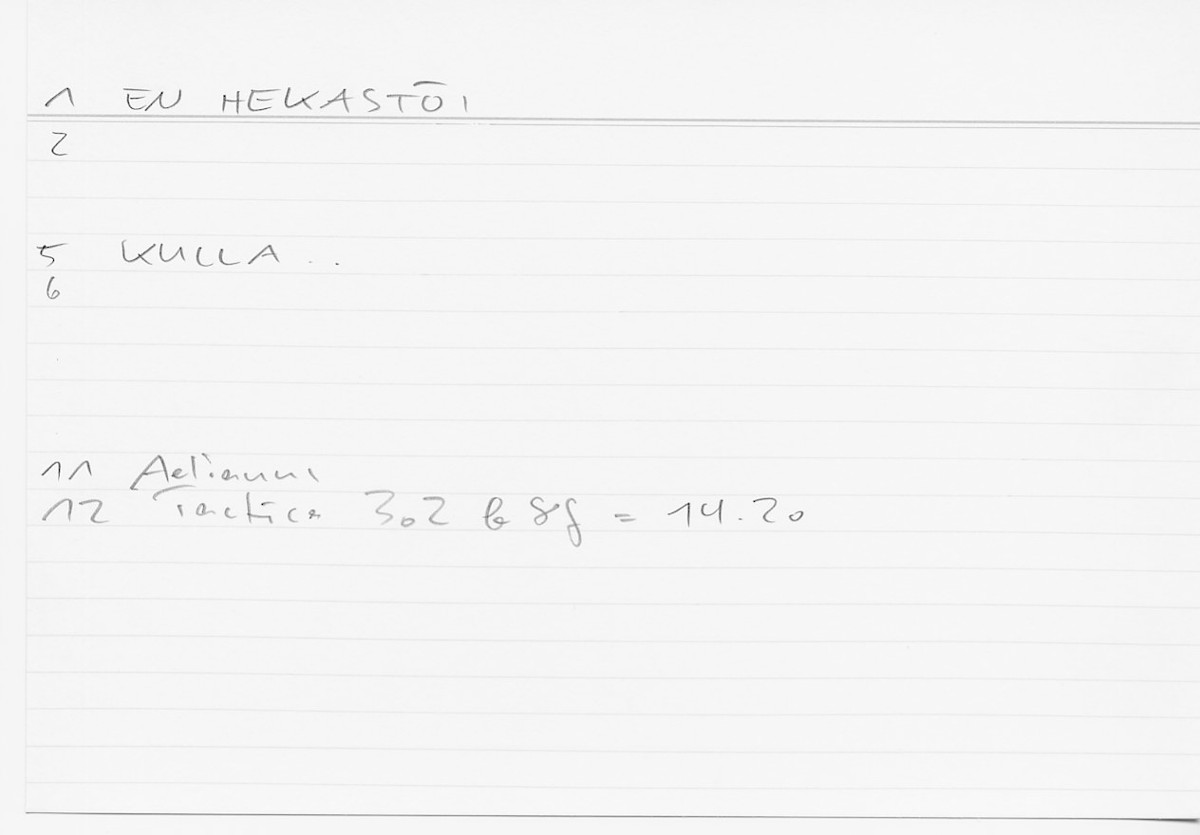 1 EN HEKASTŌI
2
5 KULLA . .
6
11 Aelianus
12 Tactica 302 b 8f = 14.20